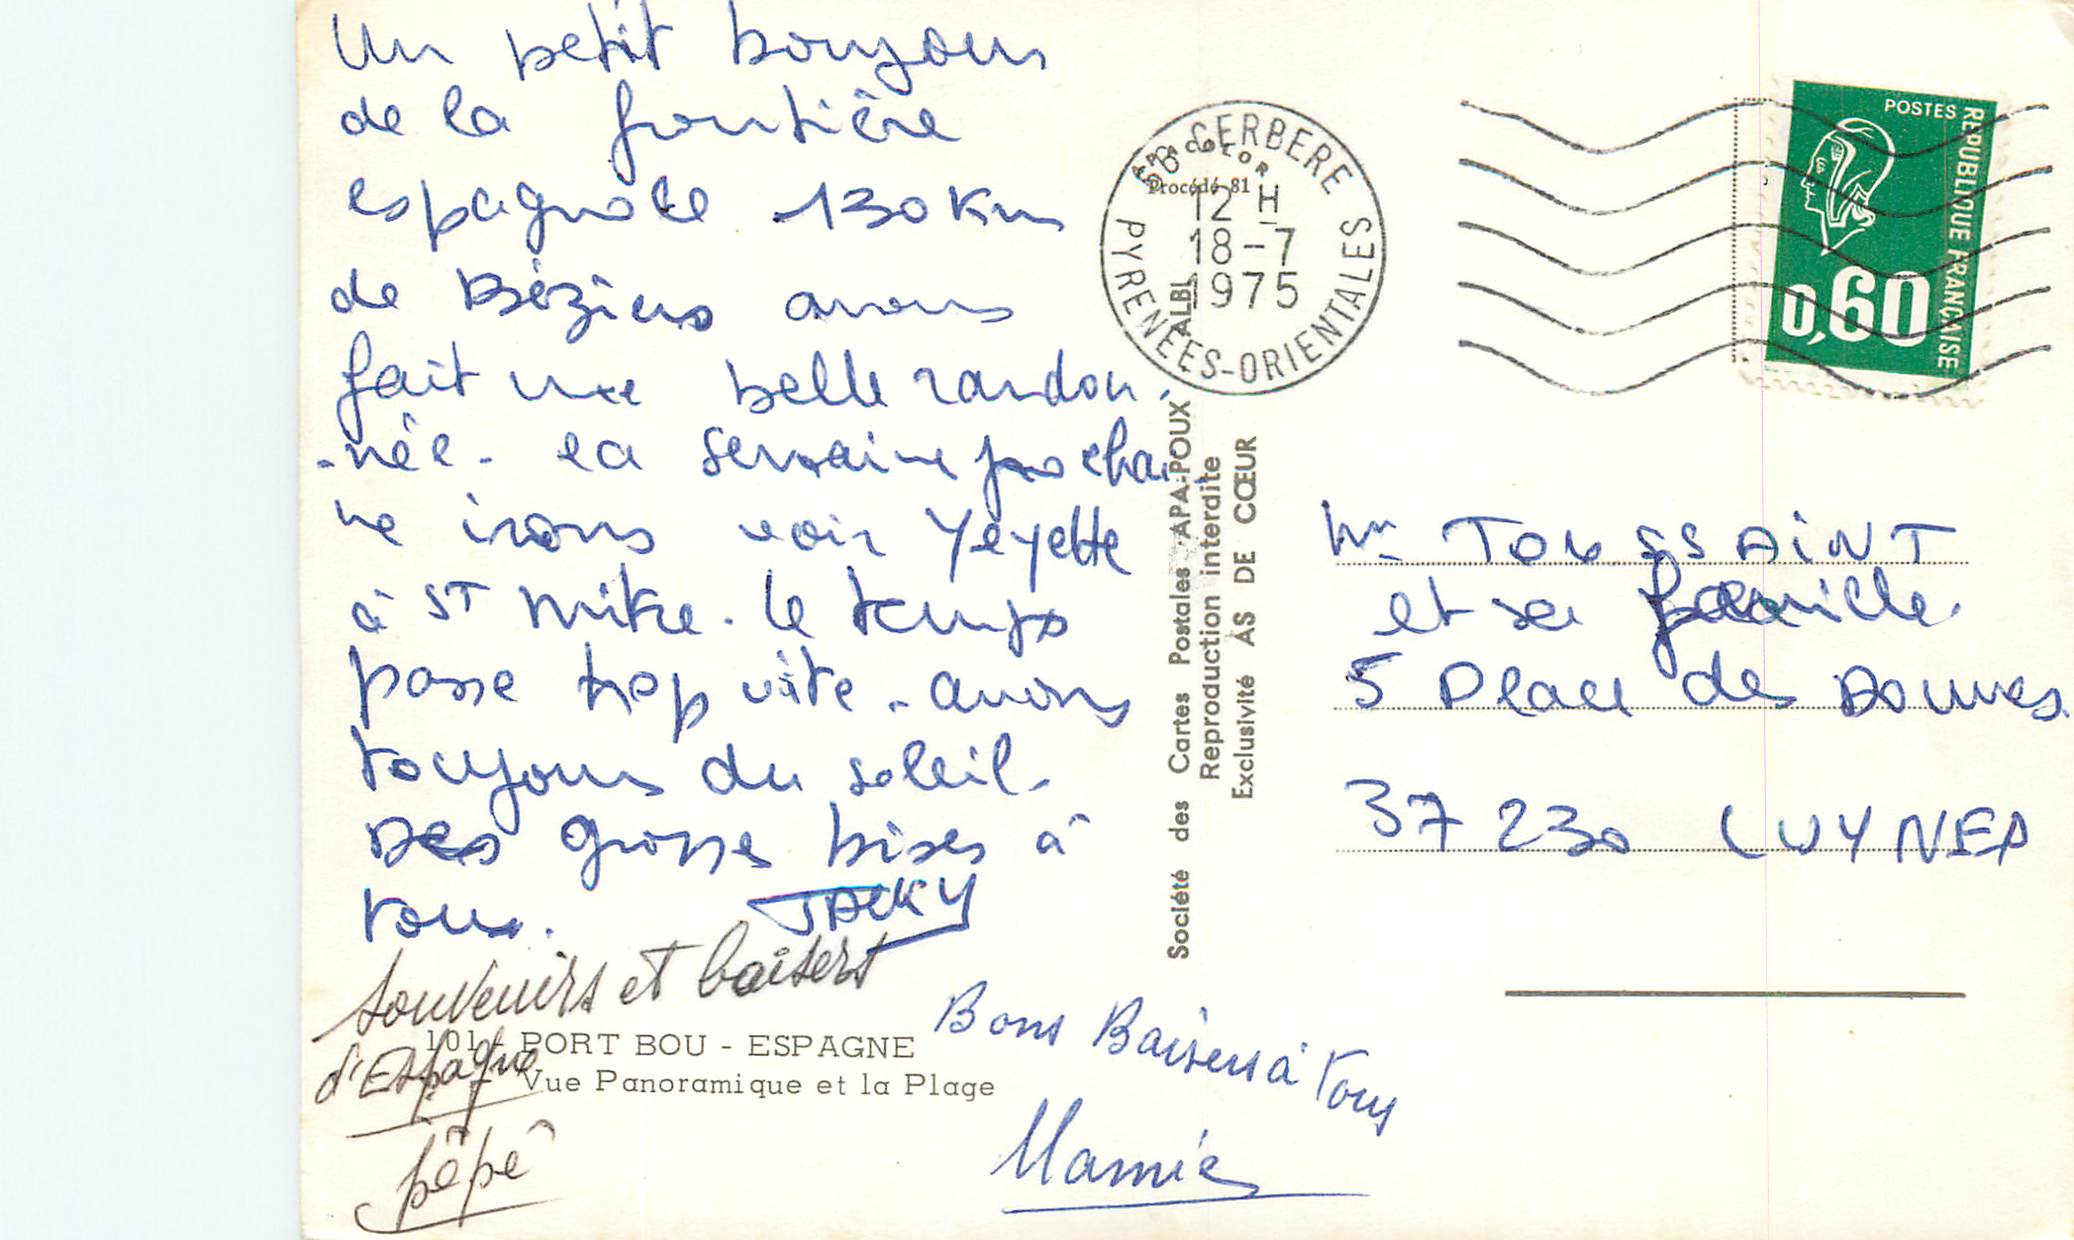 Un petit bonjour
de la frontière
espagnole 130 Km
de Béziers avons
fait une belle randon-
-née. la semaine prochai-
ne irons voir Yeyette
à ST Mitre. le temps
passe trop vite. avons
toujours du soleil.
Des grosses bises à
tous. JACKY
souvenirs et baisers
d'Espagne
pépé
101 - PORT BOU - ESPAGNE
Vue Panoramique et la Plage
Bons Baisers à Tous
Mamie
Société des Cartes Postales APA-POUX ALBI
Reproduction interdite
Exclusivité AS DE CŒUR
Procédé 81
66 CERBERE
12 H
18-7
1975
PYRENEES-ORIENTALES
POSTES
REPUBLIQUE FRANÇAISE
0,60
Mr TOUSSAINT
et sa famille
5 Place des Douves
37230 LUYNES